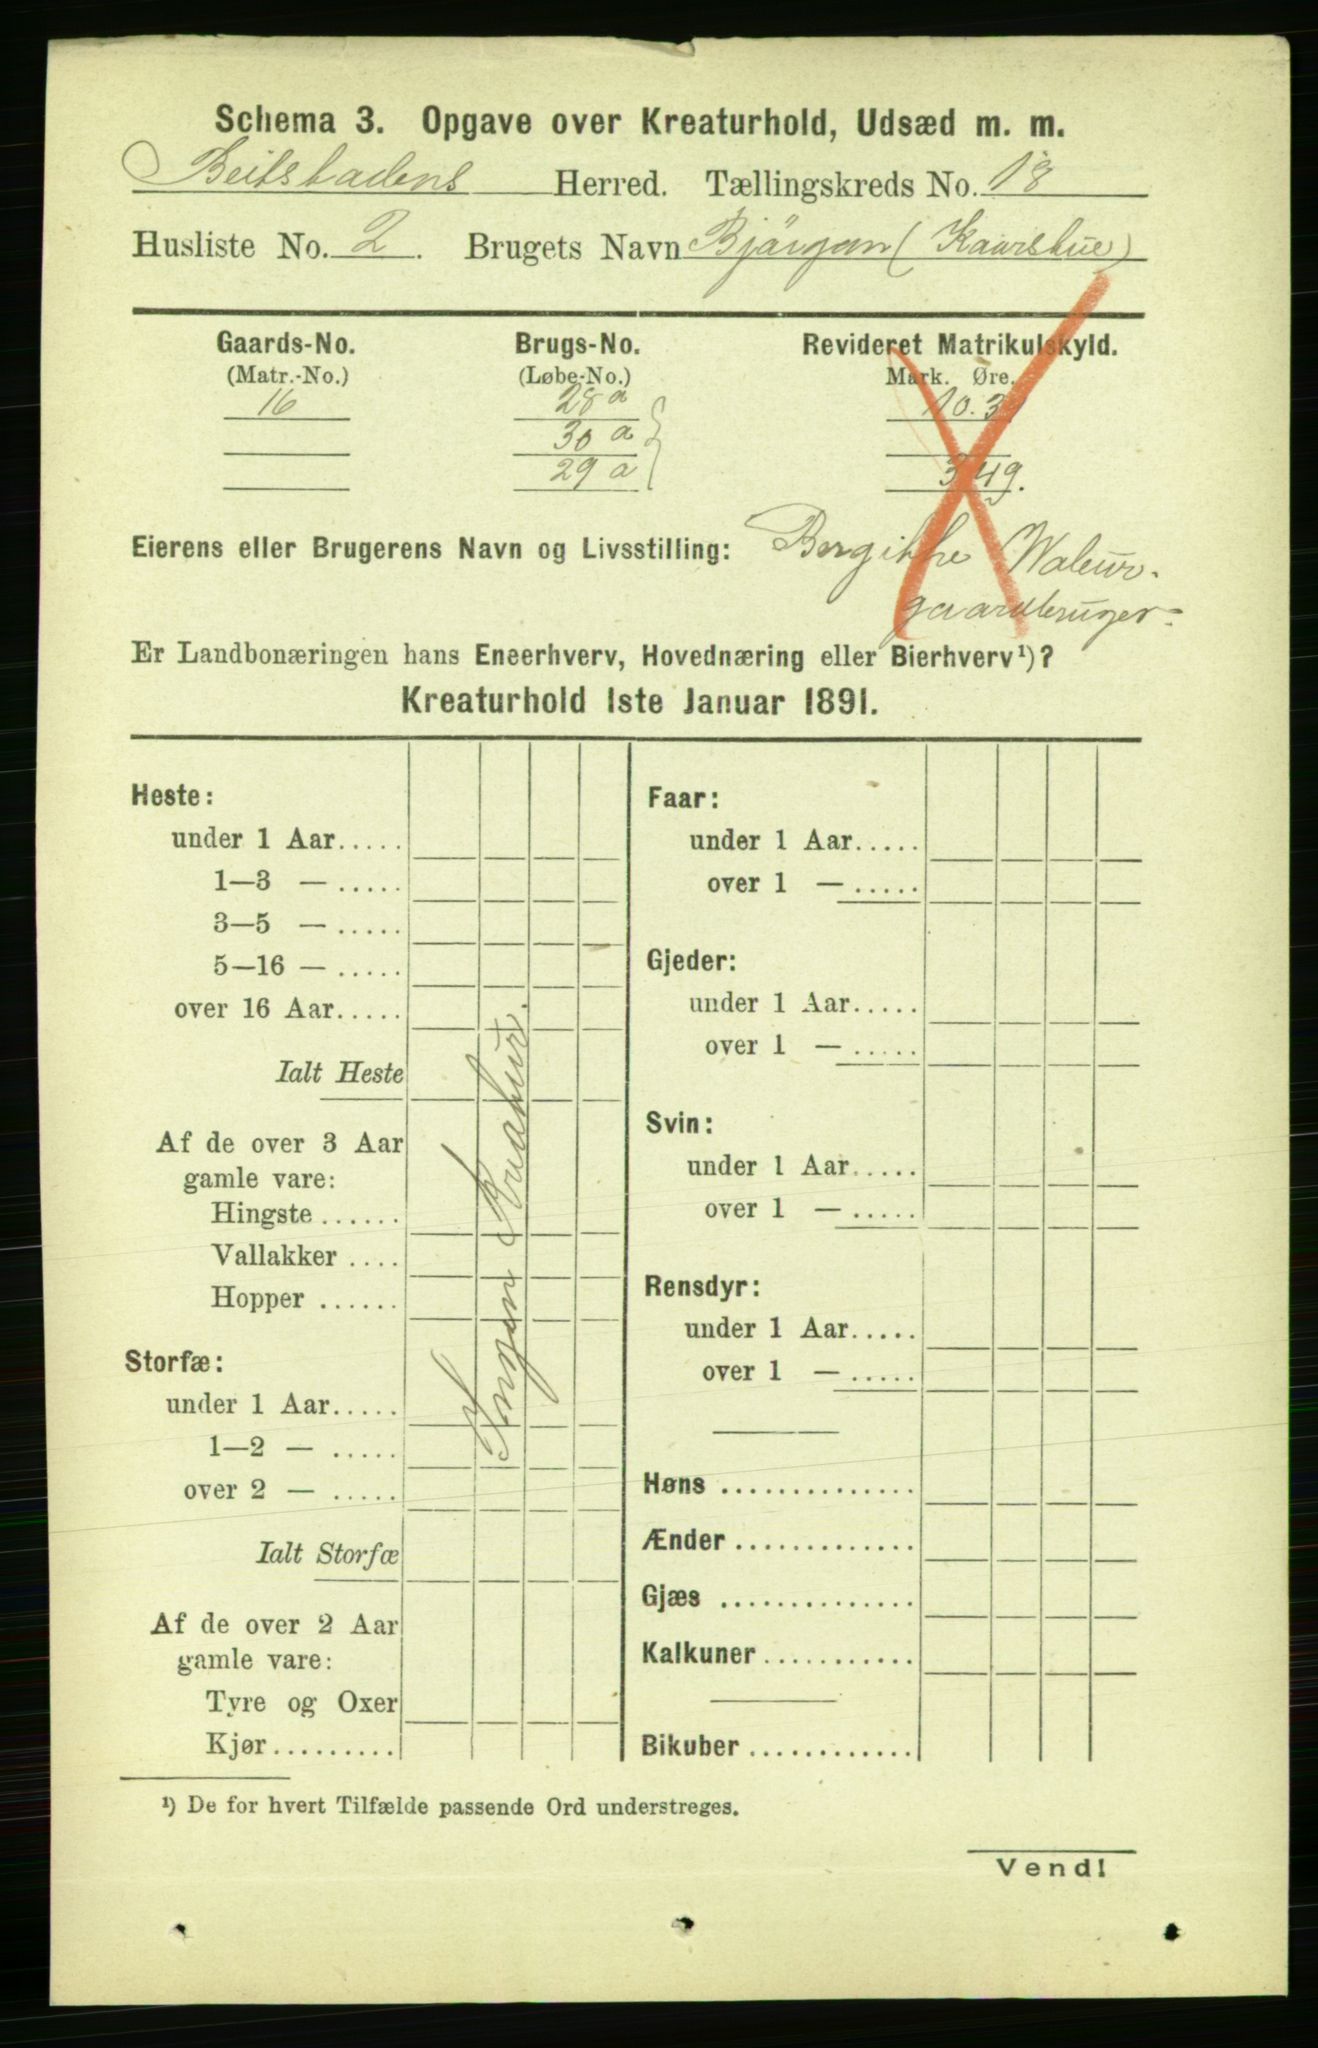 Schema 3. Opgave over Kreaturhold, Udsæd m. m.
Beitstadens Herred. Tællingskreds No. 18
Husliste No. 2. Brugets Navn Bjørgan (Kaarstue)
Gaards-No. Brugs-No. Revideret Matrikulskyld.
(Matr.-No.) (Løbe-No.) Mark. Øre.
16 28 a
30 a
29 a 3 49.
Eierens eller Brugerens Navn og Livsstilling:
gaardbruger.
Er Landbonæringen hans Eneerhverv, Hovednæring eller Bierhverv¹)?
Kreaturhold 1ste Januar 1891.
Heste:
under 1 Aar.....
1—3 — .....
3—5 — .....
5—16 — .....
over 16 Aar.....
Ialt Heste
Af de over 3 Aar
gamle vare:
Hingste ......
Vallakker ....
Hopper ......
Storfæ:
under 1 Aar.....
1—2 — .....
over 2 — .....
Ialt Storfæ
Af de over 2 Aar
gamle vare:
Tyre og Oxer
Kjør.........
Ingen Kreatur.
Faar:
under 1 Aar.....
over 1 — .....
Gjeder:
under 1 Aar.....
over 1 — .....
Svin:
under 1 Aar.....
over 1 — .....
Rensdyr:
under 1 Aar.....
over 1 — .....
Høns ..............
Ænder .............
Gjæs ..............
Kalkuner ...........
Bikuber ............
¹) De for hvert Tilfælde passende Ord understreges.
Vend!